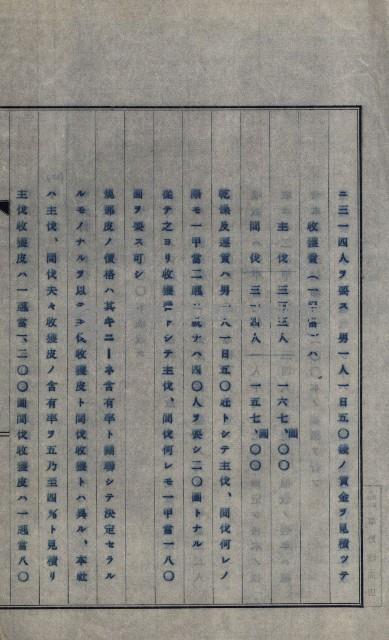 ニ三一四人ヲ要ス 男一人一日五〇錢ノ賃金ヲ見積ツテ
收獲費(一甲當)ハ、
主伐 三三三人 一六七、〇〇圓
間伐 三一四人 一五七、〇〇
乾燥皮運賃ハ男一人一日五〇瓩トシテ主伐、間伐何レノ
際モ一甲當二瓲ニ就テハ四〇人ヲ要シ二〇圓トナル
從テ之ヨリ收獲費トシテ主伐、間伐何レモ一甲當一八〇
圓ヲ要ス可シ
規那皮ノ價格ハ其キニーネ含有率ト關聯シテ決定セラル
ルモノナルヲ以テ主伐收獲皮ト間伐收獲トハ異ル、本社
ハ主伐、間伐夫々收獲皮ノ含有率ヲ五乃至四%ト見積リ
主伐收獲皮ハ一瓲當一、二〇〇圓間伐收獲皮ハ一瓲當八〇